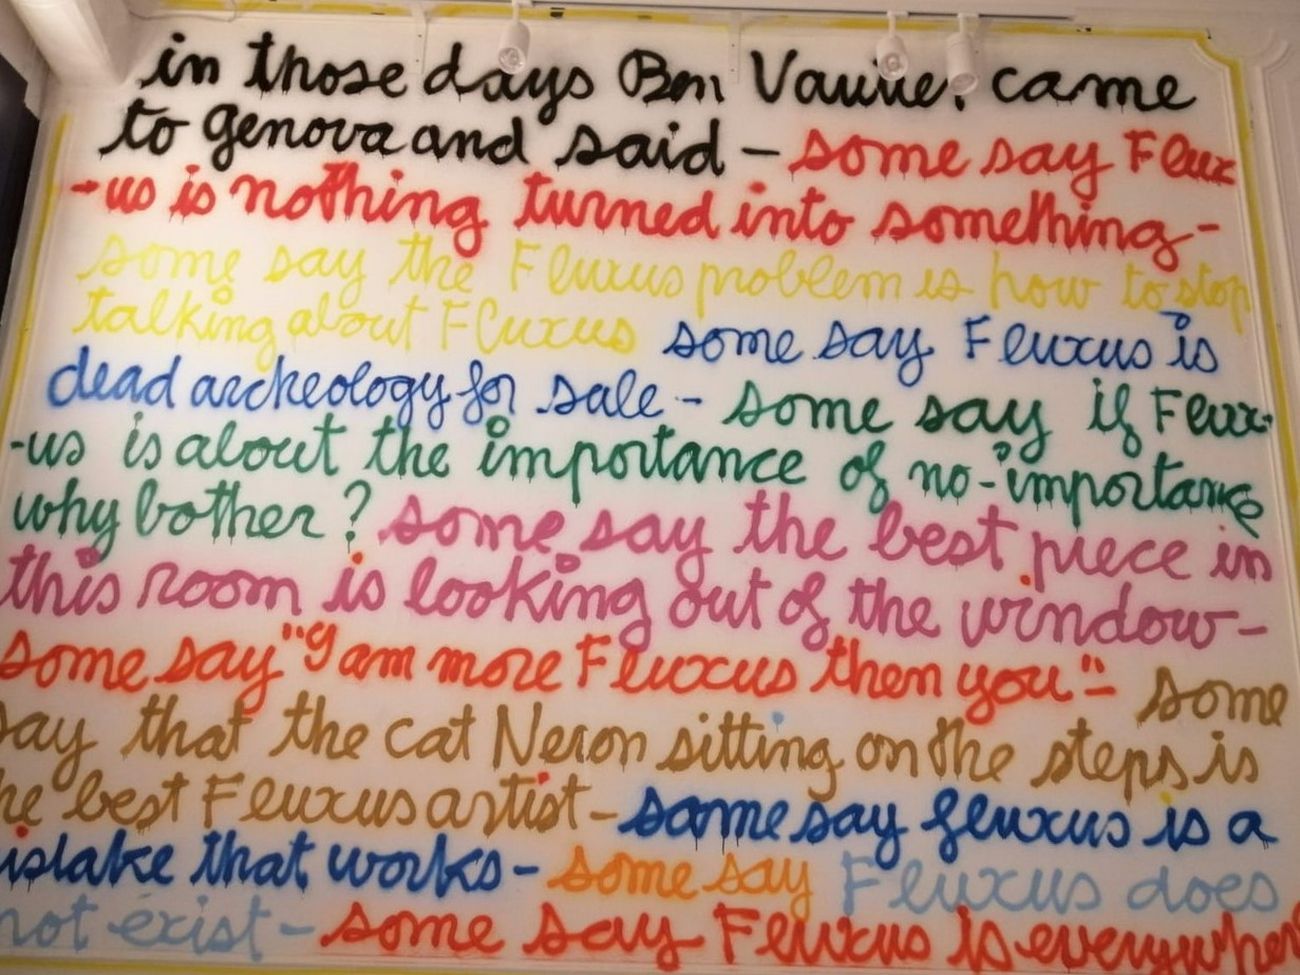 in those days Ben Vautier came
to genova and said - some say Flux
-us is nothing turned into something -
some say the Fluxus problem is how to stop
talking about Fluxus some say Fluxus is
dead archeology for sale - some say if Flux-
-us is about the importance of no-importance
why bother? some say the best piece in
this room is looking out of the window -
some say "I am more Fluxus then you" - some
say that the cat Neron sitting on the steps is
he best Fluxus artist - some say fluxus is a
istake that works - some say Fluxus does
not exist - some say Fluxus is everywher